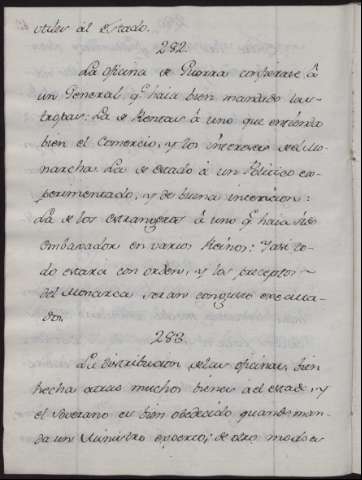 utiles al Estado.
282.
La oficina de Guerra confierase â
un General, q.e haia bien mandado las
tropas: La de Rentas â uno que entienda
bien el Comercio, y los intereses del Mo-
narcha: La de estado â un Politico ex-
perimentado, y de buena intencion:
La de los estrangeros â uno q.e haia sido
Embaxador en varios Reinos: Y asi to-
do estará con orden, y los preceptos
del Monarca, seran con gusto executa-
dos.
283.
La distribucion de las oficinas, bien
hecha atrae muchos bienes a el estado, y
el Soverano es bien obedecido quando man-
da un Ministro experto; de otro modo es